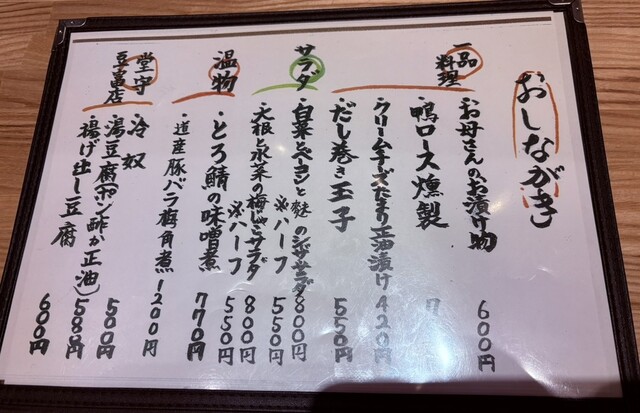 おしながき
一品料理
お母さんのお漬け物 600円
鴨ロース燻製 7 円
クリームチーズたまり正油漬け 420円
だし巻き玉子 550円
サラダ
・白菜とベーコンと のシーザーサラダ 800円
※ハーフ 550円
・大根と水菜の梅じゃこサラダ 800円
※ハーフ 550円
温物
・とろ鯖の味噌煮 770円
・道産豚バラ梅角煮 1200円
堂守豆富店
・冷奴 500円
・湯豆腐(ポン酢か正油) 580円
・揚げ出し豆腐 600円